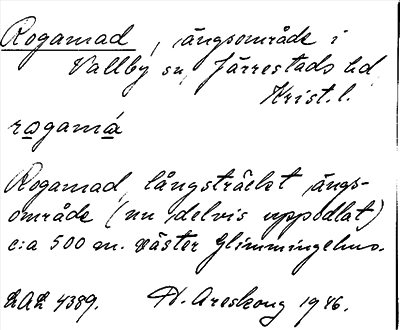 Rogamad, ängsområde i
Vallby sn, Järrestads hd,
Krist. l.
rogamá
Rogamad, långsträckt ängs-
område (nu delvis uppodlat)
c:a 500 m. väster Glimmingehus.
LAL 4389. H. Areskoug 1946.